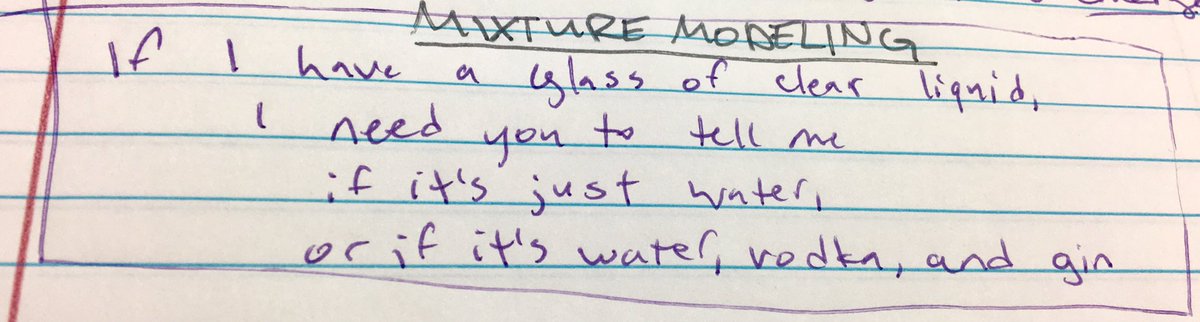 MIXTURE MODELING
If I have a glass of clear liquid,
I need you to tell me
if it's just water,
or if it's water, vodka, and gin